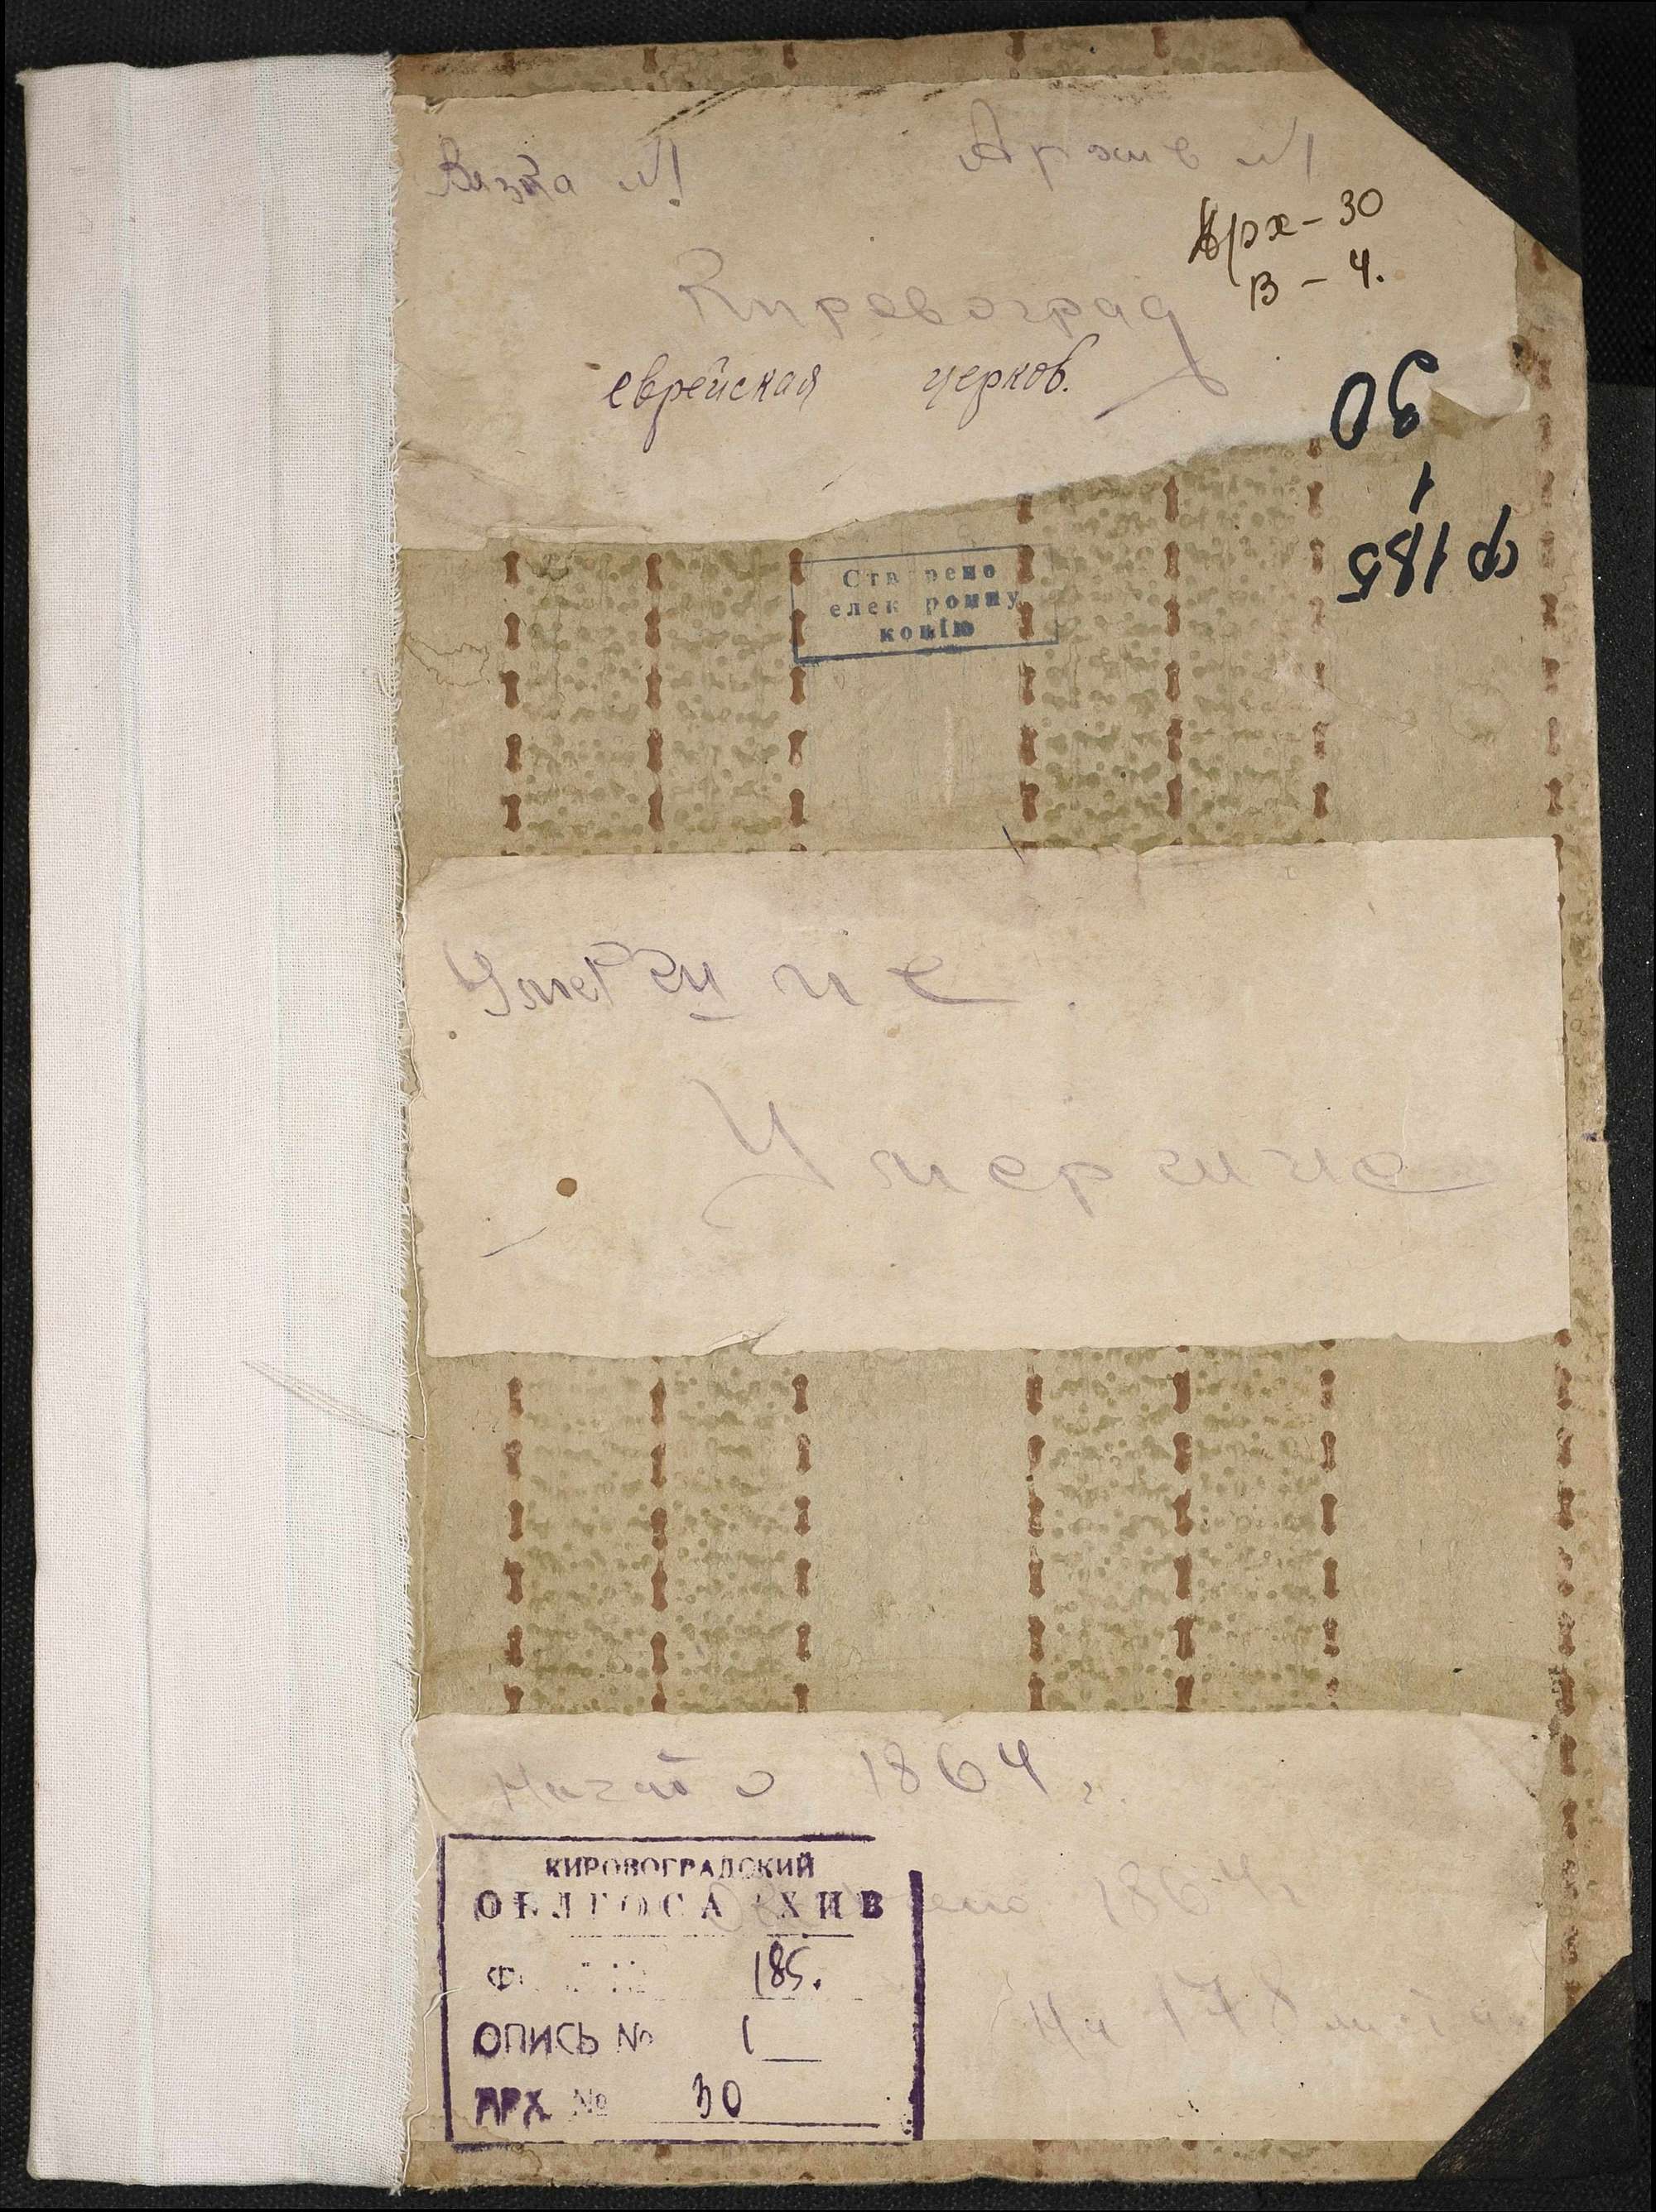 Вязка №1
Архив №1
Арх - 30
В - 4.
Кировоград
еврейская церков.
30
1
ф 185
Створено
електронну
копію
Умершие
Умершие
Начато 1864 г.
КИРОВОГРАДСКИЙ
ОБЛГОСАРХИВ
185.
ОПИСЬ № 1
АРХ № 30
1864 г
На 178 листах